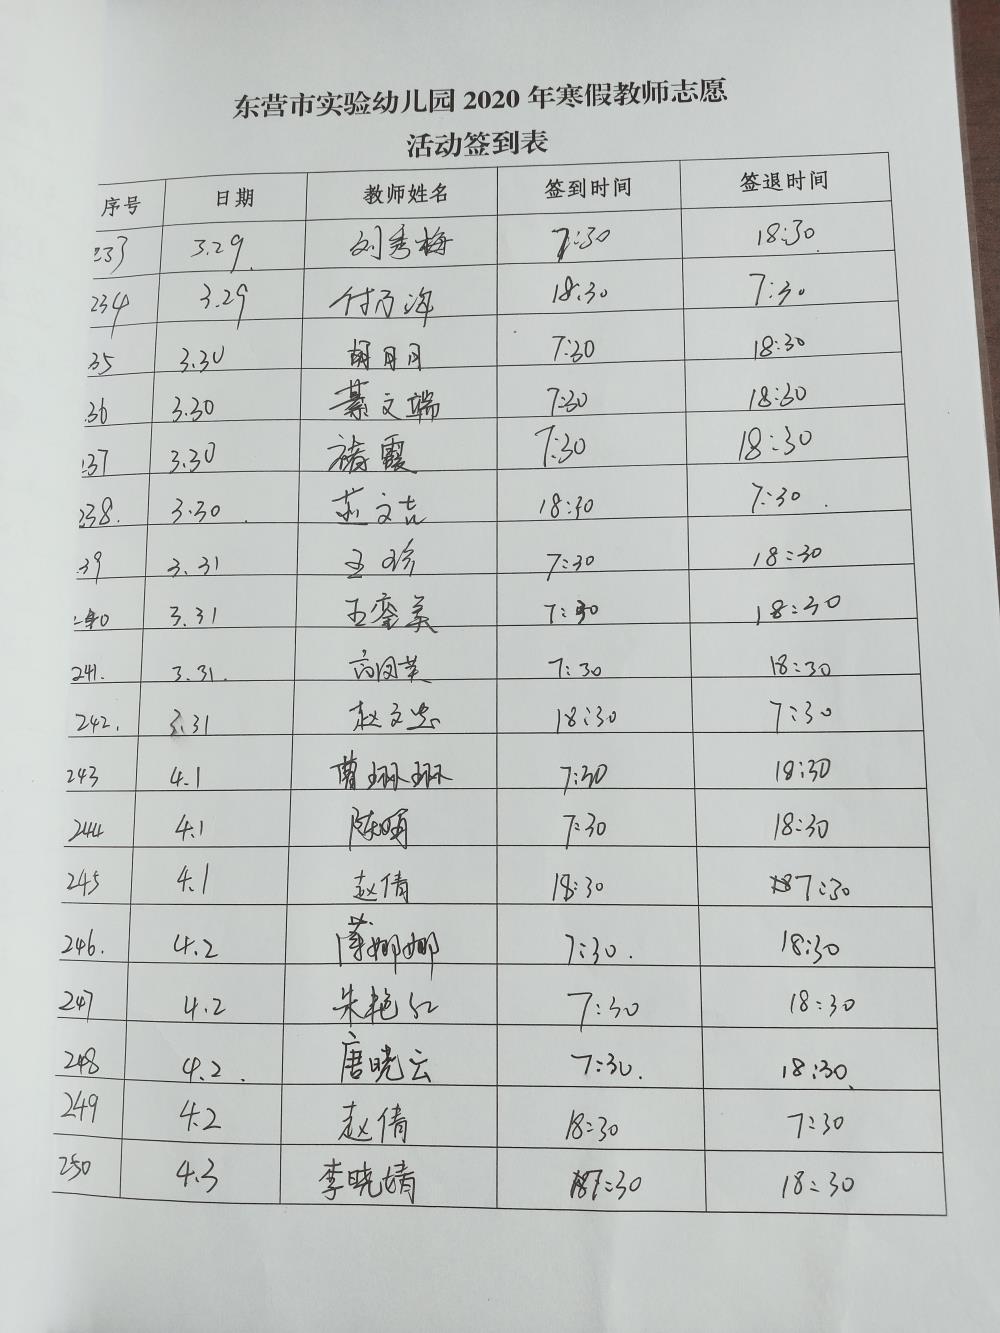 东营市实验幼儿园 2020 年寒假教师志愿
活动签到表
序号 日期 教师姓名 签到时间 签退时间
233 3.29. 刘秀梅 7:30 18:30
234 3.29 18:30 7:30
35 3.30 胡月月 7:30 18:30
36 3.30 綦文端 7:30 18:30
37 3.30 褚霞 7:30 18:30
238. 3.30. 18:30 7:30
39 3.31 王珍 7:30 18:30
240 3.31 王銮英 7:30 18:30
241. 3.31. 高闵英 7:30 18:30
242. 3.31 赵文忠 18:30 7:30
243 4.1 曹珊珊 7:30 18:30
244 4.1 7:30 18:30
245 4.1 赵倩 18:30 7:30
246. 4.2 娜娜 7:30. 18:30
247 4.2 朱艳红 7:30 18:30
248 4.2. 唐晓云 7:30. 18:30.
249 4.2 赵倩 18:30 7:30
250 4.3 李晓婧 7:30 18:30